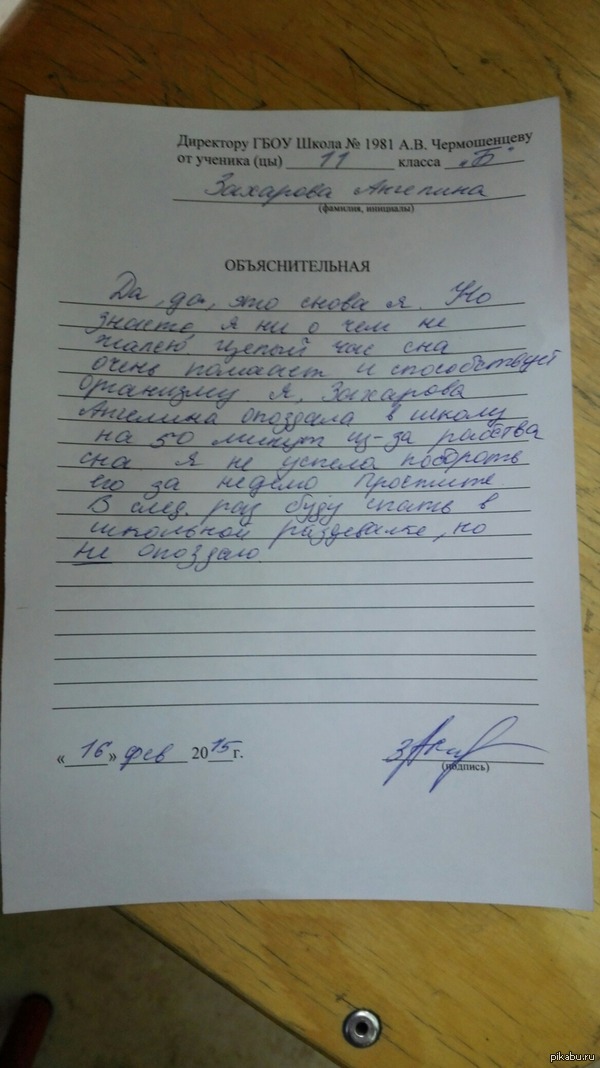 Директору ГБОУ Школа № 1981 А.В. Чермошенцеву
от ученика (цы) 11 класса "Б"
Захарова Ангелина
(фамилия, инициалы)
ОБЪЯСНИТЕЛЬНАЯ
Да, да, это снова я. Но
знаете, я ни о чем не
жалею. Целый час сна
очень помогает и способствует
организму. Я, Захарова
Ангелина опоздала в школу
на 50 минут из-за рабства
сна. Я не успела побороть
его за неделю. Простите
В след. раз буду спать в
школьной раздевалке, но
не опоздаю.
«16» фев 2015г.
(подпись)
pikabu.ru